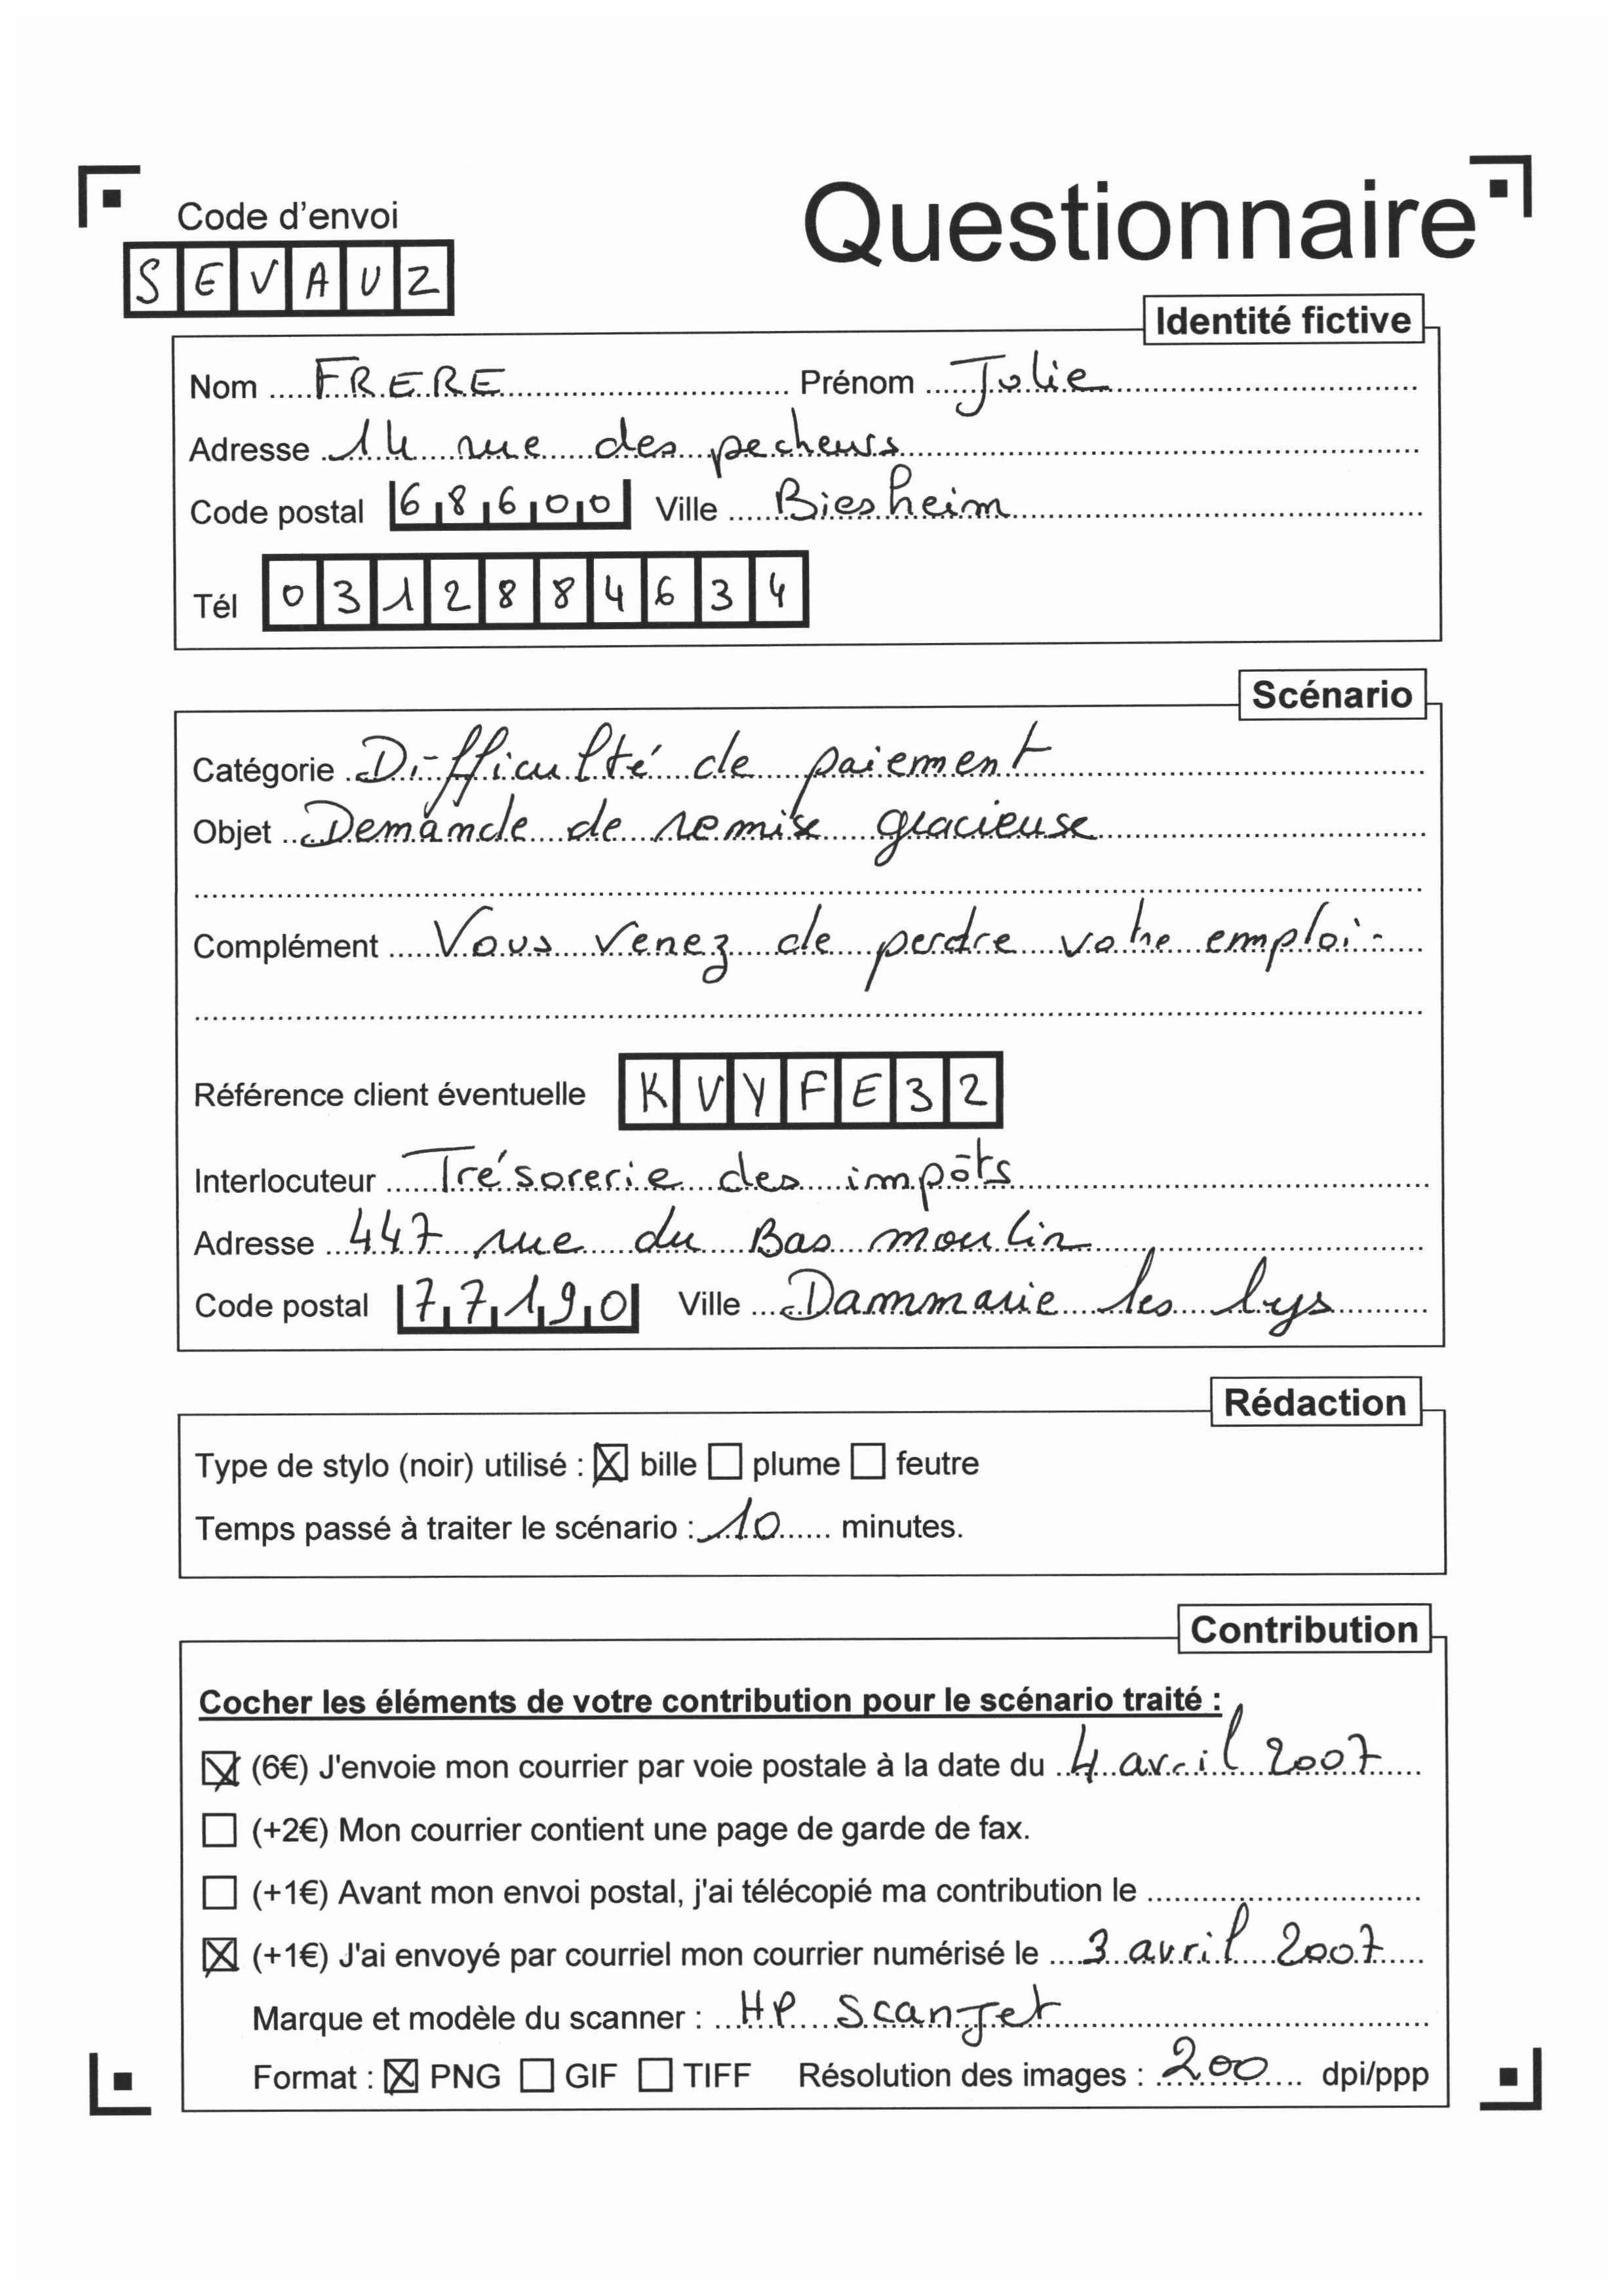 Questionnaire
Code d'envoi
SEVAUZ
Identité fictive
Nom FRERE Prénom Jolie
Adresse 14 rue des pecheurs
Code postal 68600 Ville Biesheim
Tél 0312884634
Scénario
Catégorie Difficulté de paiement
Objet Demande de remise gracieuse
Complément Vous venez de perdre votre emploi.
Référence client éventuelle KVYFE32
Interlocuteur Trésorerie des impôts
Adresse 447 rue du Bas moulin
Code postal 77190 Ville Dammarie les lys
Rédaction
Type de stylo (noir) utilisé : ☒ bille ☐ plume ☐ feutre
Temps passé à traiter le scénario : 10 minutes.
Contribution
Cocher les éléments de votre contribution pour le scénario traité :
☒ (6€) J'envoie mon courrier par voie postale à la date du 4 avril 2007
☐ (+2€) Mon courrier contient une page de garde de fax.
☐ (+1€) Avant mon envoi postal, j'ai télécopié ma contribution le
☒ (+1€) J'ai envoyé par courriel mon courrier numérisé le 3 avril 2007
Marque et modèle du scanner : HP ScanJet
Format : ☒ PNG ☐ GIF ☐ TIFF Résolution des images : 200 dpi/ppp